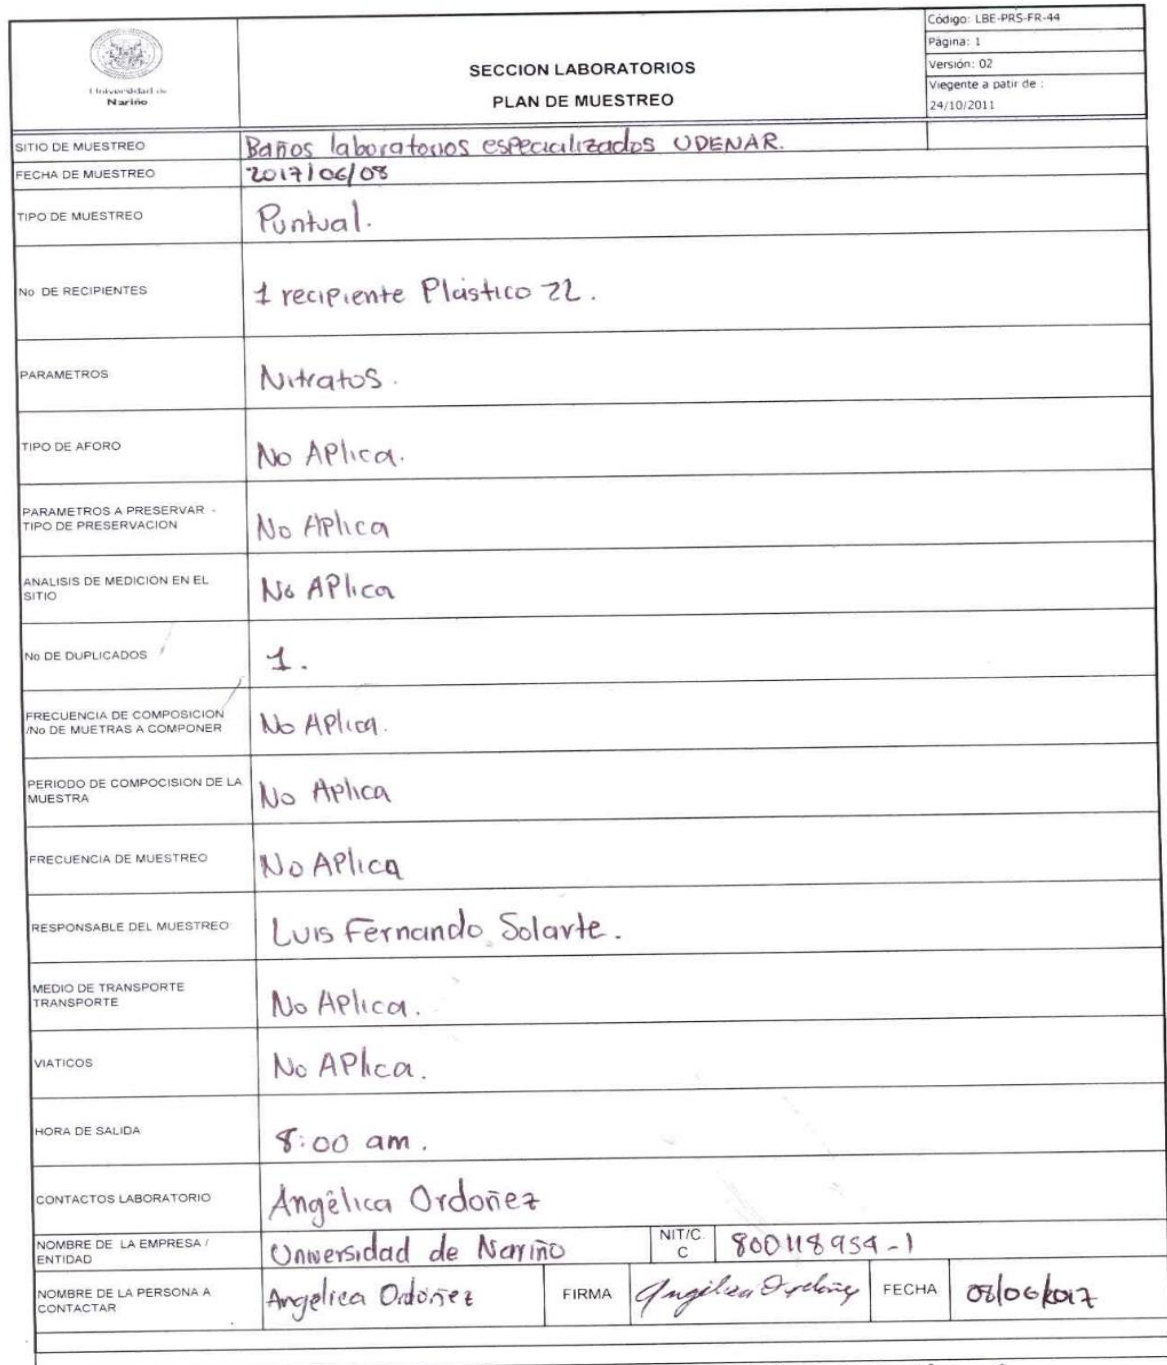 Universidad de
Nariño
SECCION LABORATORIOS
PLAN DE MUESTREO
Código: LBE-PRS-FR-44
Página: 1
Versión: 02
Viegente a patir de :
24/10/2011
SITIO DE MUESTREO Baños laboratorios especializados UDENAR.
FECHA DE MUESTREO 2017/06/08
TIPO DE MUESTREO Puntual.
No DE RECIPIENTES 1 recipiente Plástico 2L.
PARAMETROS Nitratos.
TIPO DE AFORO No Aplica.
PARAMETROS A PRESERVAR -
TIPO DE PRESERVACION No Aplica
ANALISIS DE MEDICION EN EL
SITIO No Aplica
No DE DUPLICADOS 1.
FRECUENCIA DE COMPOSICION
/No DE MUETRAS A COMPONER No Aplica.
PERIODO DE COMPOCISION DE LA
MUESTRA No Aplica
FRECUENCIA DE MUESTREO No Aplica
RESPONSABLE DEL MUESTREO Luis Fernando Solarte.
MEDIO DE TRANSPORTE
TRANSPORTE No Aplica.
VIATICOS No Aplica.
HORA DE SALIDA 8:00 am.
CONTACTOS LABORATORIO Angélica Ordoñez
NOMBRE DE LA EMPRESA /
ENTIDAD Universidad de Nariño NIT/C.C 800118954-1
NOMBRE DE LA PERSONA A
CONTACTAR Angelica Ordoñez FIRMA Angélica Ordoñez FECHA 08/06/2017